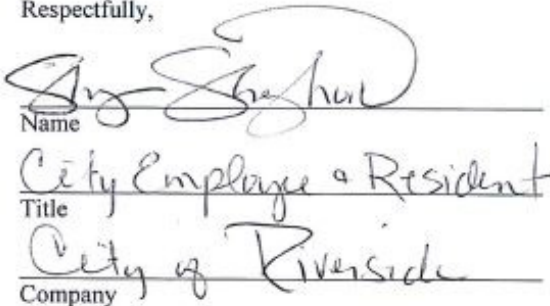 Respectfully,
Name
City Employee & Resident
Title
City of Riverside
Company